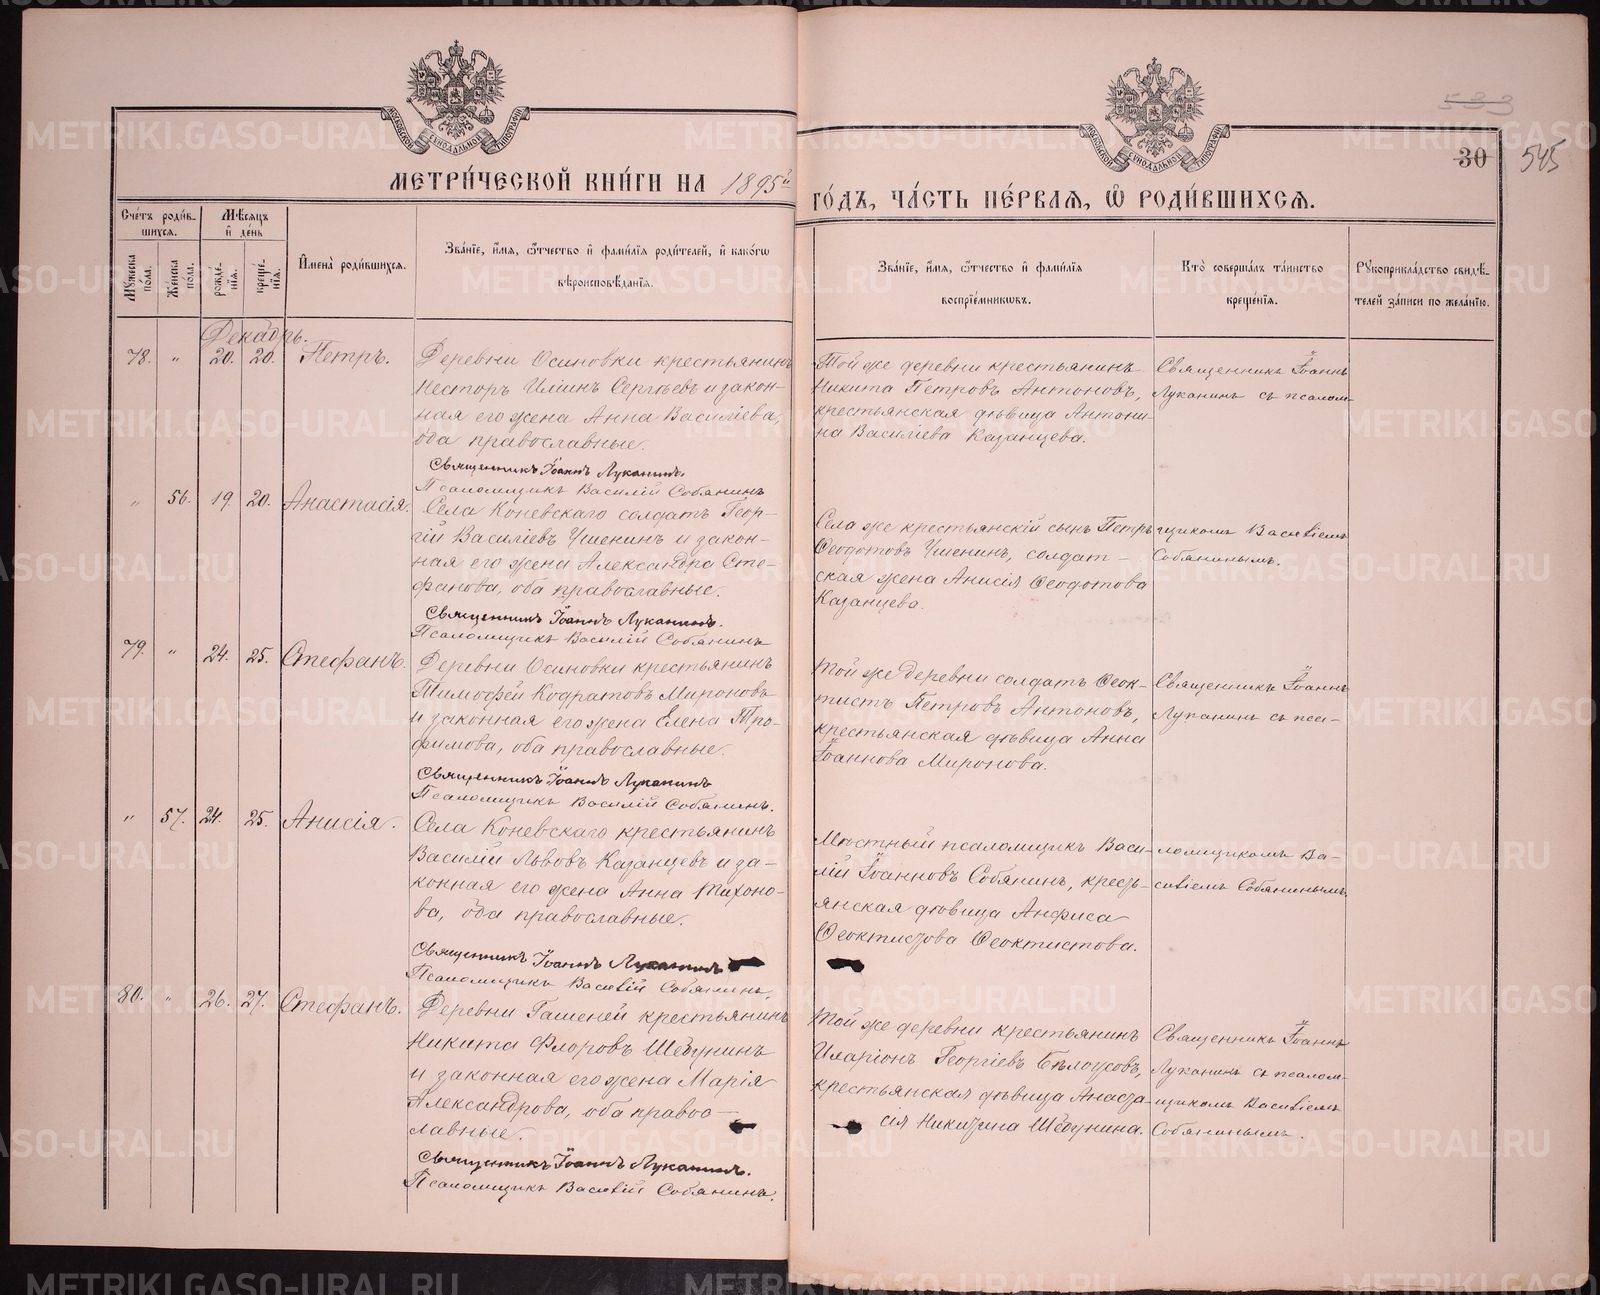 МЕТРИ́ЧЕСКОЙ КНИ́ГИ НА 1895й
ГО́ДЪ, ЧА́СТЬ ПЕ́РВАЯ, Ѡ РОДИ́ВШИХСЯ.
533
30
545
Сче́тъ роди́в-
шихся.
Мѣ́сяцъ
и҆ де́нь
Му́жеска по́ла.
Же́нска по́ла.
рожде́-
нїя.
креще́-
нїя.
И҆мена̀ роди́вшихся.
Зва́нїе, и҆́мя, ѻ҆́тчество и҆ фами́лїя роди́телей, и҆ како́гѡ
вѣроисповѣ́данїя.
Зва́нїе, и҆́мя, ѻ҆́тчество и҆ фами́лїя
воспрїе́мникѡвъ.
Кто̀ соверша́лъ та́инство
креще́нїя.
Рꙋкоприкла́дство свидѣ́-
телей за́писи по жела́нїю.
Декабрь.
78. " 20. 20. Петръ.
Деревни Осиновки крестьянинъ
Несторъ Илiинъ Сергѣевъ и закон-
ная его жена Анна Василiева,
оба православные.
Священникъ Iоаннъ Луканинъ.
Псаломщикъ Василiй Собянинъ
Той же деревни крестьянинъ
Никита Петровъ Антоновъ,
крестьянская дѣвица Антони-
на Василiева Казанцева.
Священникъ Iоаннъ
Луканинъ съ псалом-
" 56. 19. 20. Анастасiя.
Села Коневскаго солдатъ Геор-
гiй Василiевъ Ушенинъ и закон-
ная его жена Александра Сте-
фанова, оба православные.
Священникъ Iоаннъ Луканинъ.
Псаломщикъ Василiй Собянинъ
Села же крестьянскiй сынъ Петръ
Ѳеодотовъ Ушенинъ, солдат-
ская жена Анисiя Ѳеодотова
Казанцева.
щикомъ Василiемъ
Собянинымъ.
79. " 24. 25. Стефанъ.
Деревни Осиновки крестьянинъ
Тимофей Кодратовъ Мироновъ
и законная его жена Елена Тро-
фимова, оба православные.
Священникъ Iоаннъ Луканинъ
Псаломщикъ Василiй Собянинъ.
Той же деревни солдатъ Ѳеок-
тистъ Петровъ Антоновъ,
крестьянская дѣвица Анна
Iоаннова Миронова.
Священникъ Iоаннъ
Луканинъ съ пса-
" 57. 24. 25. Анисiя.
Села Коневскаго крестьянинъ
Василiй Львовъ Казанцевъ и за-
конная его жена Анна Тихоно-
ва, оба православные.
Священникъ Iоаннъ Луканинъ
Псаломщикъ Василiй Собянинъ.
Мѣстный псаломщикъ Васи-
лiй Iоанновъ Собянинъ, кресть-
янская дѣвица Анфиса
Ѳеоктистова Ѳеоктистова.
ломщикомъ Ва-
силiемъ Собянинымъ.
80. " 26. 27. Стефанъ.
Деревни Гашеней крестьянинъ
Никита Флоровъ Шебунинъ
и законная его жена Марiя
Александрова, оба правос-
лавные.
Священникъ Iоаннъ Луканинъ.
Псаломщикъ Василiй Собянинъ.
Той же деревни крестьянинъ
Иларiонъ Георгiевъ Бѣлоусовъ,
крестьянская дѣвица Анаста-
сiя Никитина Шебунина.
Священникъ Iоаннъ
Луканинъ съ псалом-
щикомъ Василiемъ
Собянинымъ.
METRIKI.GASO-URAL.RU